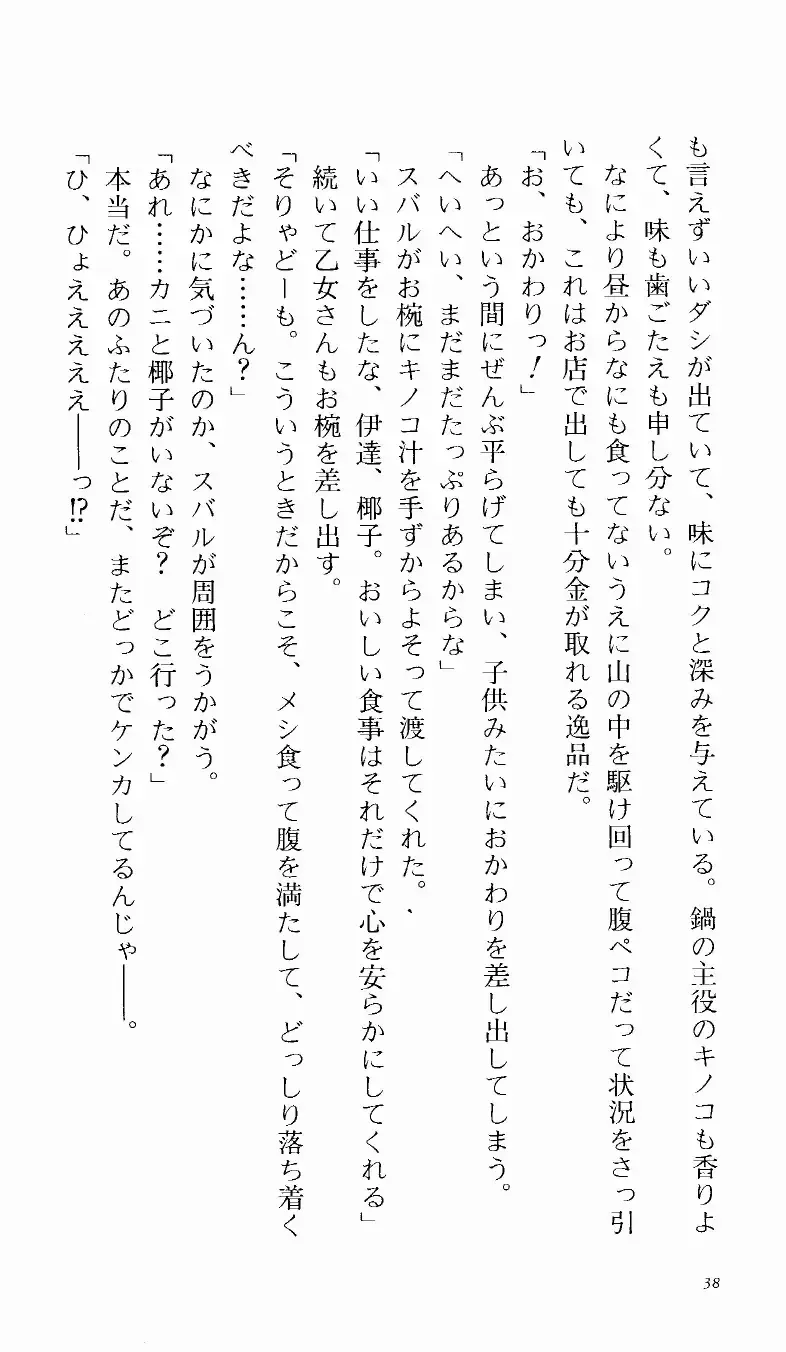 も言えずいいダシが出ていて、味にコクと深みを与えている。鍋の主役のキノコも香りよ
くて、味も歯ごたえも申し分ない。
なにより昼からなにも食ってないうえに山の中を駆け回って腹ペコだって状況をさっ引
いても、これはお店で出しても十分金が取れる逸品だ。
「お、おかわりっ！」
あっという間にぜんぶ平らげてしまい、子供みたいにおかわりを差し出してしまう。
「へいへい、まだまだたっぷりあるからな」
スバルがお椀にキノコ汁を手ずからよそって渡してくれた。
「いい仕事をしたな、伊達、椰子。おいしい食事はそれだけで心を安らかにしてくれる」
続いて乙女さんもお椀を差し出す。
「そりゃどーも。こういうときだからこそ、メシ食って腹を満たして、どっしり落ち着く
べきだよな……ん？」
なにかに気づいたのか、スバルが周囲をうかがう。
「あれ……カニと椰子がいないぞ？　どこ行った？」
本当だ。あのふたりのことだ、またどっかでケンカしてるんじゃ――。
「ひ、ひょえええええ――っ!?」
38